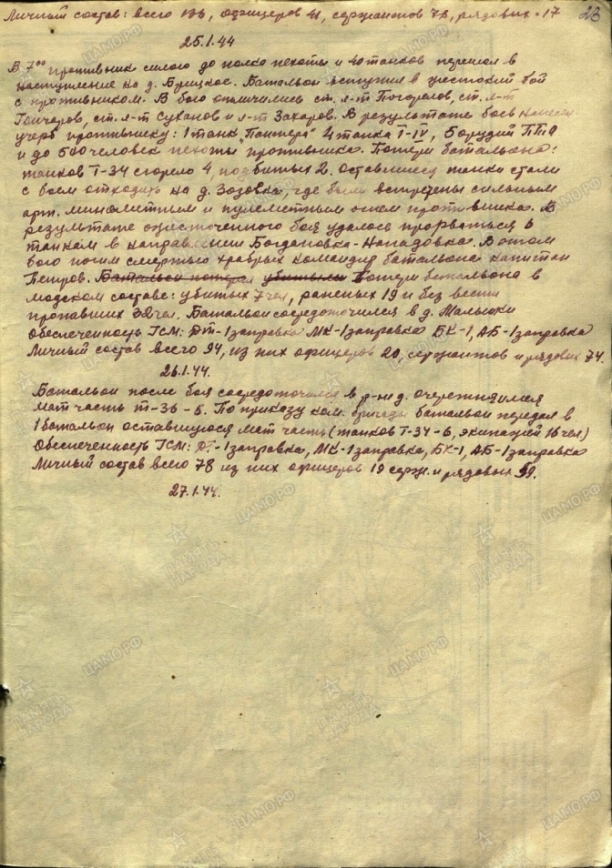 Личный состав: всего 136, офицеров 41, сержантов 78, рядовых-17
23
25.1.44
В 7⁰⁰ противник силою до полка пехоты и 40 танков перешел в
наступление на д. Брицкое. Батальон вступил в жестокий бой
с противником. В бою отличились ст. л-т Погорелов, ст. л-т
ст. л-т Суханов и л-т Захаров. В результате боя нанесен
урон противнику: 1 танк "Пантера" 4 танка Т-IV, 5 орудий ПТО
и до 500 человек пехоты противника. Потери батальона:
танков Т-34 сгорело 4, подбитых 2. Оставшиеся танки стали
с боем отходить на д. Зозовка, где были встречены сильным
арт. минометным и пулеметным огнем противника. В
результате ожесточенного боя удалось прорваться 6
танкам в направлении Богдановка-Нападовка. В этом
бою погиб смертью храбрых командир батальона капитан
Петров. Батальон потерял убитыми Потери батальона в
людском составе: убитых 7 чел, раненых 19 и без вести
пропавших 32 чел. Батальон сосредоточился в д.
Обеспеченность ГСМ: ДТ-1заправка МК-1заправка БК-1, АБ-1заправка
Личный состав всего 94, из них офицеров 20, сержантов и рядовых 74.
26.1.44.
Батальон после боя сосредоточился в р-не д.
мат часть По приказу ком. бригады батальон передал в
1 батальон оставшуюся мат часть (танков Т-34-6, экипажей 16 чел)
Обеспеченность ГСМ: ДТ-1заправка, МК-1заправка, БК-1, АБ-1заправка
Личный состав всего 78 из них офицеров 19 серж. и рядовых 59.
27.1.44.
ЦАМО.РФ
ПАМЯТЬ НАРОДА